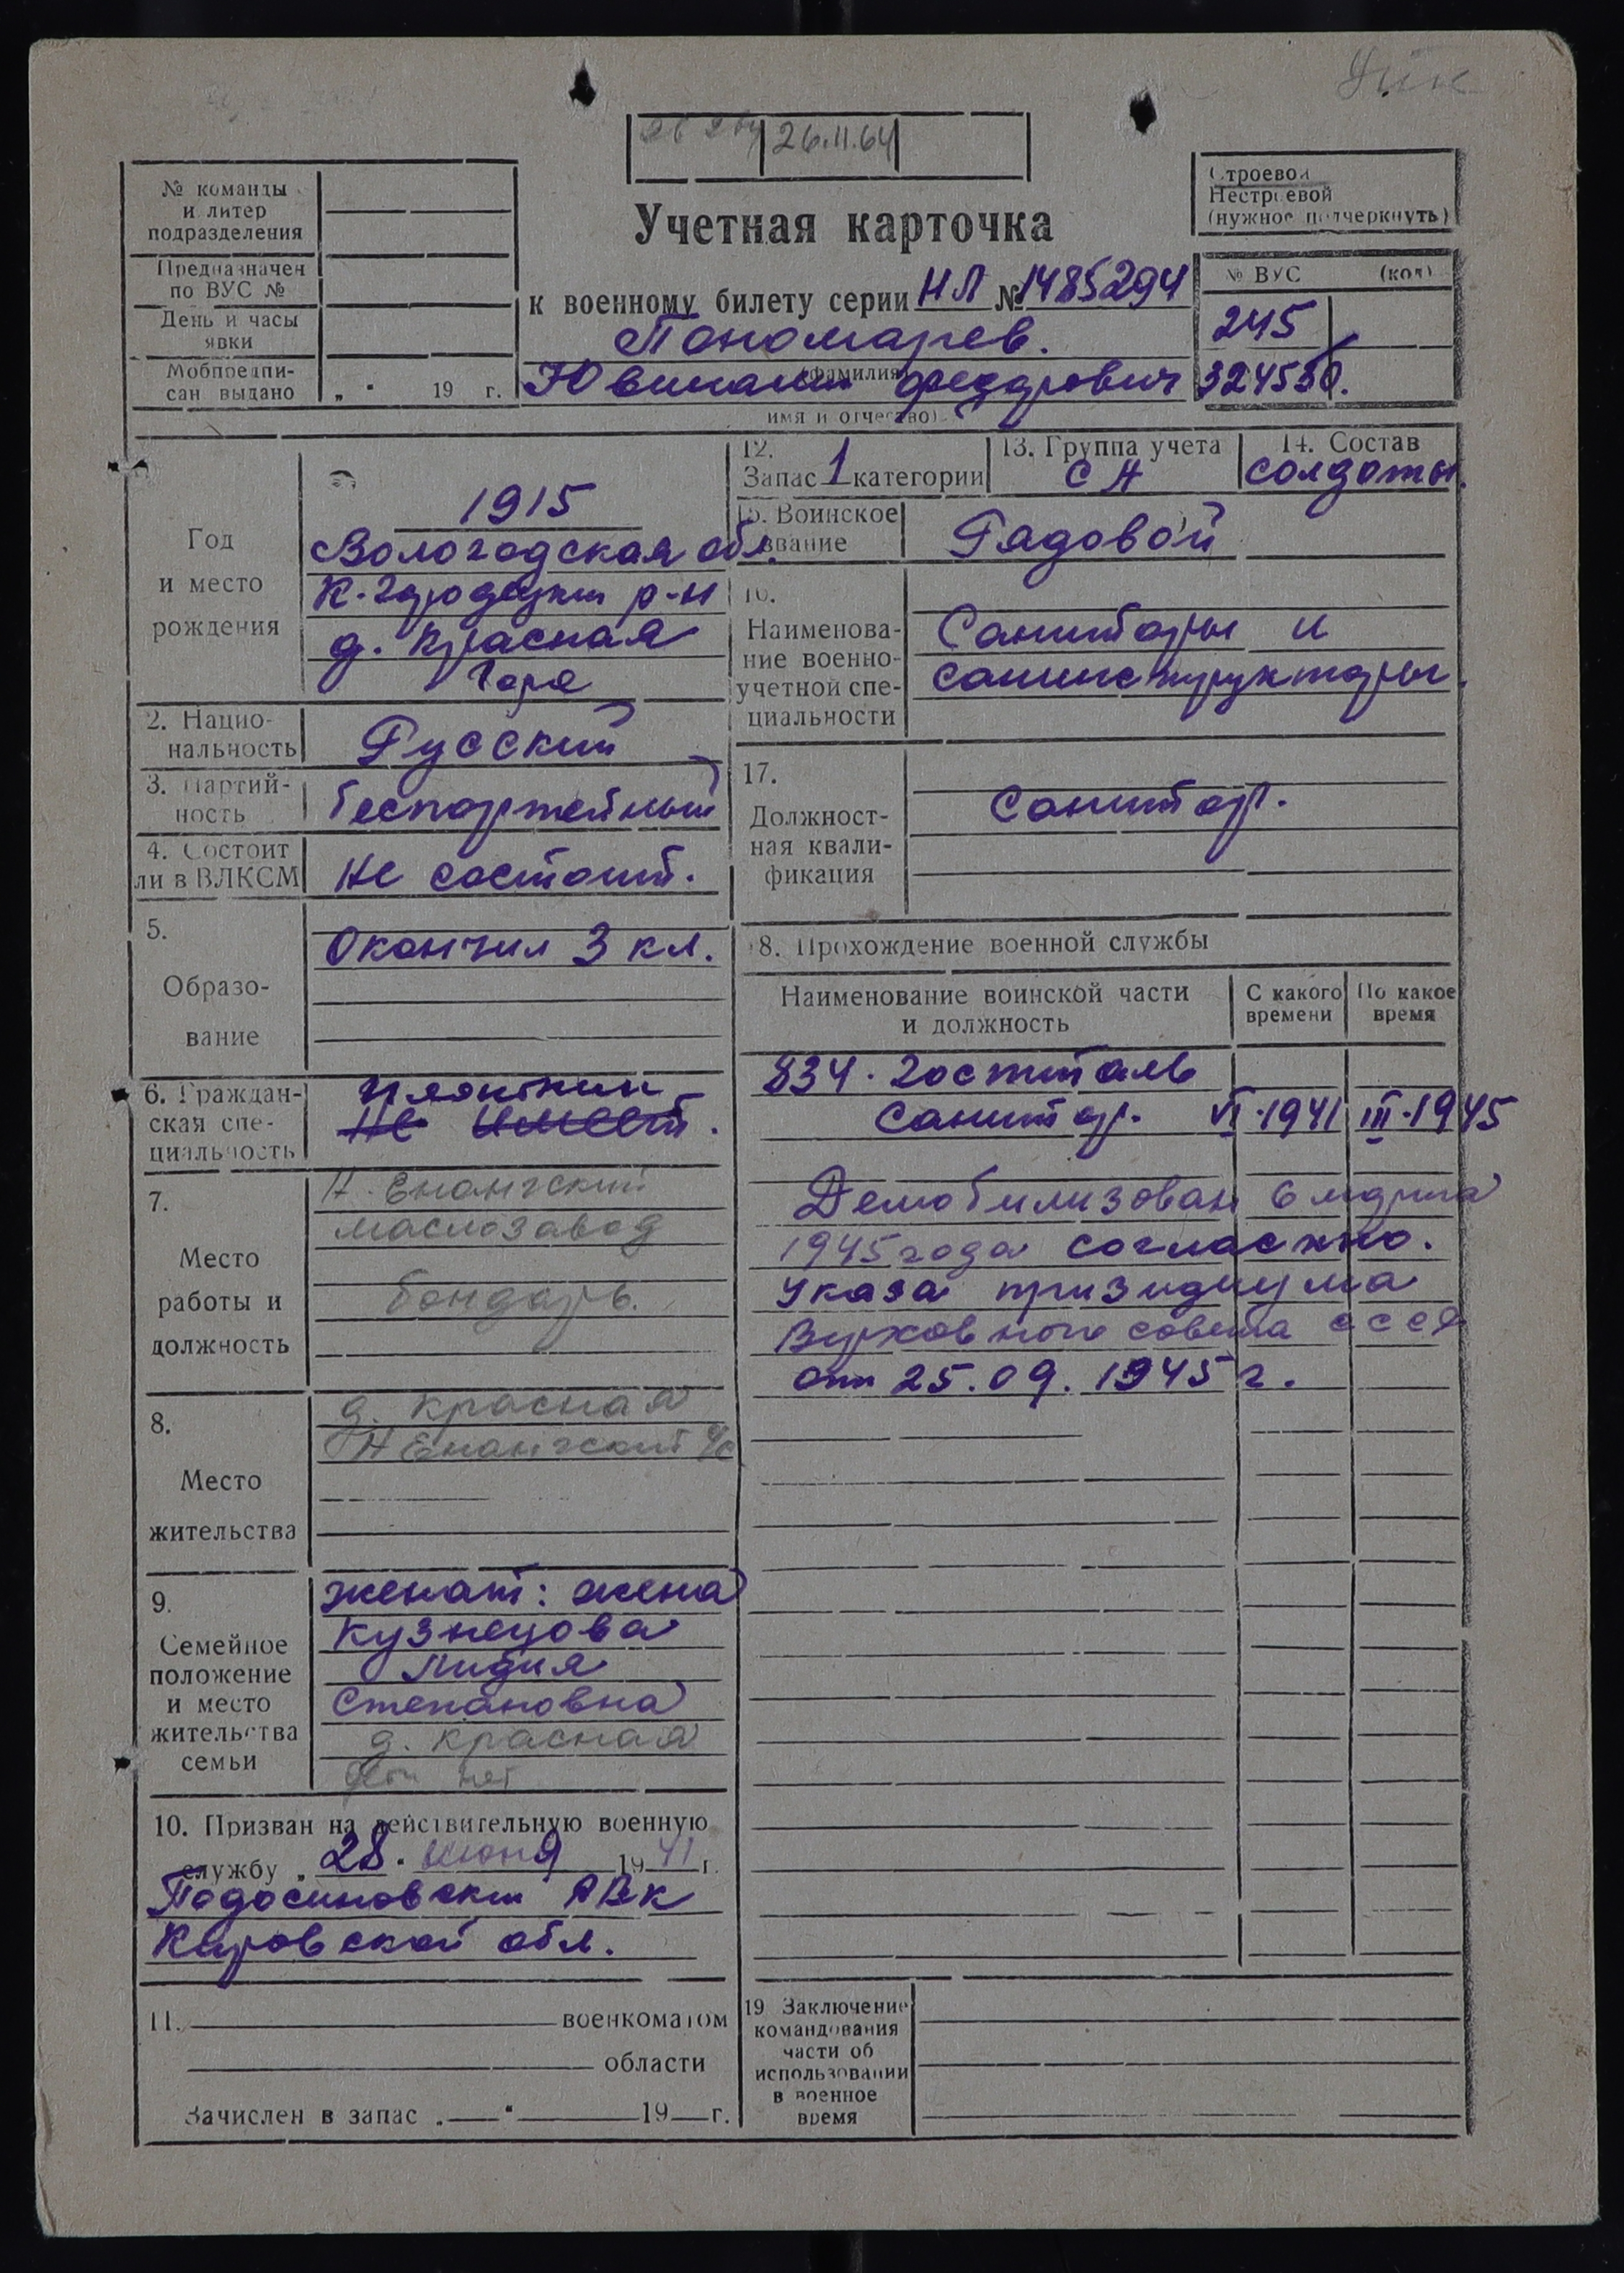 26.11.64
№ команды
и литер
подразделения
Предназначен
по ВУС №
День и часы
явки
Мобпредпи-
сан выдано
„ “ 19 г.
Строевой
Нестроевой
(нужное подчеркнуть)
Учетная карточка
к военному билету серии НЛ № 1485294
Пономарев.
(фамилия)
Ювиналий Федорович
имя и отчество)
№ ВУС (код)
245
Год
и место
рождения
1915
Вологодская обл.
К-Городецкий р-н
д. Красная
Гора
2. Нацио-
нальность
Русский
3. Партий-
ность
беспартейный
4. Состоит
ли в ВЛКСМ
Не состоит.
5.
Образо-
вание
Окончил 3 кл.
6. Граждан-
ская спе-
циальность
Плотник
Не имеет.
7.
Место
работы и
должность
Н. Енангский
маслозавод
бондарь.
8.
Место
жительства
д. Красная
Н Енангский с/с
9.
Семейное
положение
и место
жительства
семьи
женат: жена
Кузнецова
Лидия
Степановна
д. Красная
дети нет
10. Призван на действительную военную
службу „ 28 “ июня 1941 г.
Подосиновский РВК
Кировской обл.
11. военкоматом
области
Зачислен в запас „ “ 19 г.
12.
Запас 1 категории
13. Группа учета
СА
14. Состав
солдаты.
15. Воинское
звание
Рядовой
16.
Наименова-
ние военно-
учетной спе-
циальности
Санитары и
санинструкторы.
17.
Должност-
ная квали-
фикация
Санитар.
18. Прохождение военной службы
Наименование воинской части
и должность
С какого
времени
По какое
время
834. госпиталь
Санитар. VI-1941 III-1945
Демобилизован 6 марта
1945 года согласно.
Указа призидиума
Верховного совета СССР
от 25.09.1945 г.
19. Заключение
командования
части об
использовании
в военное
время